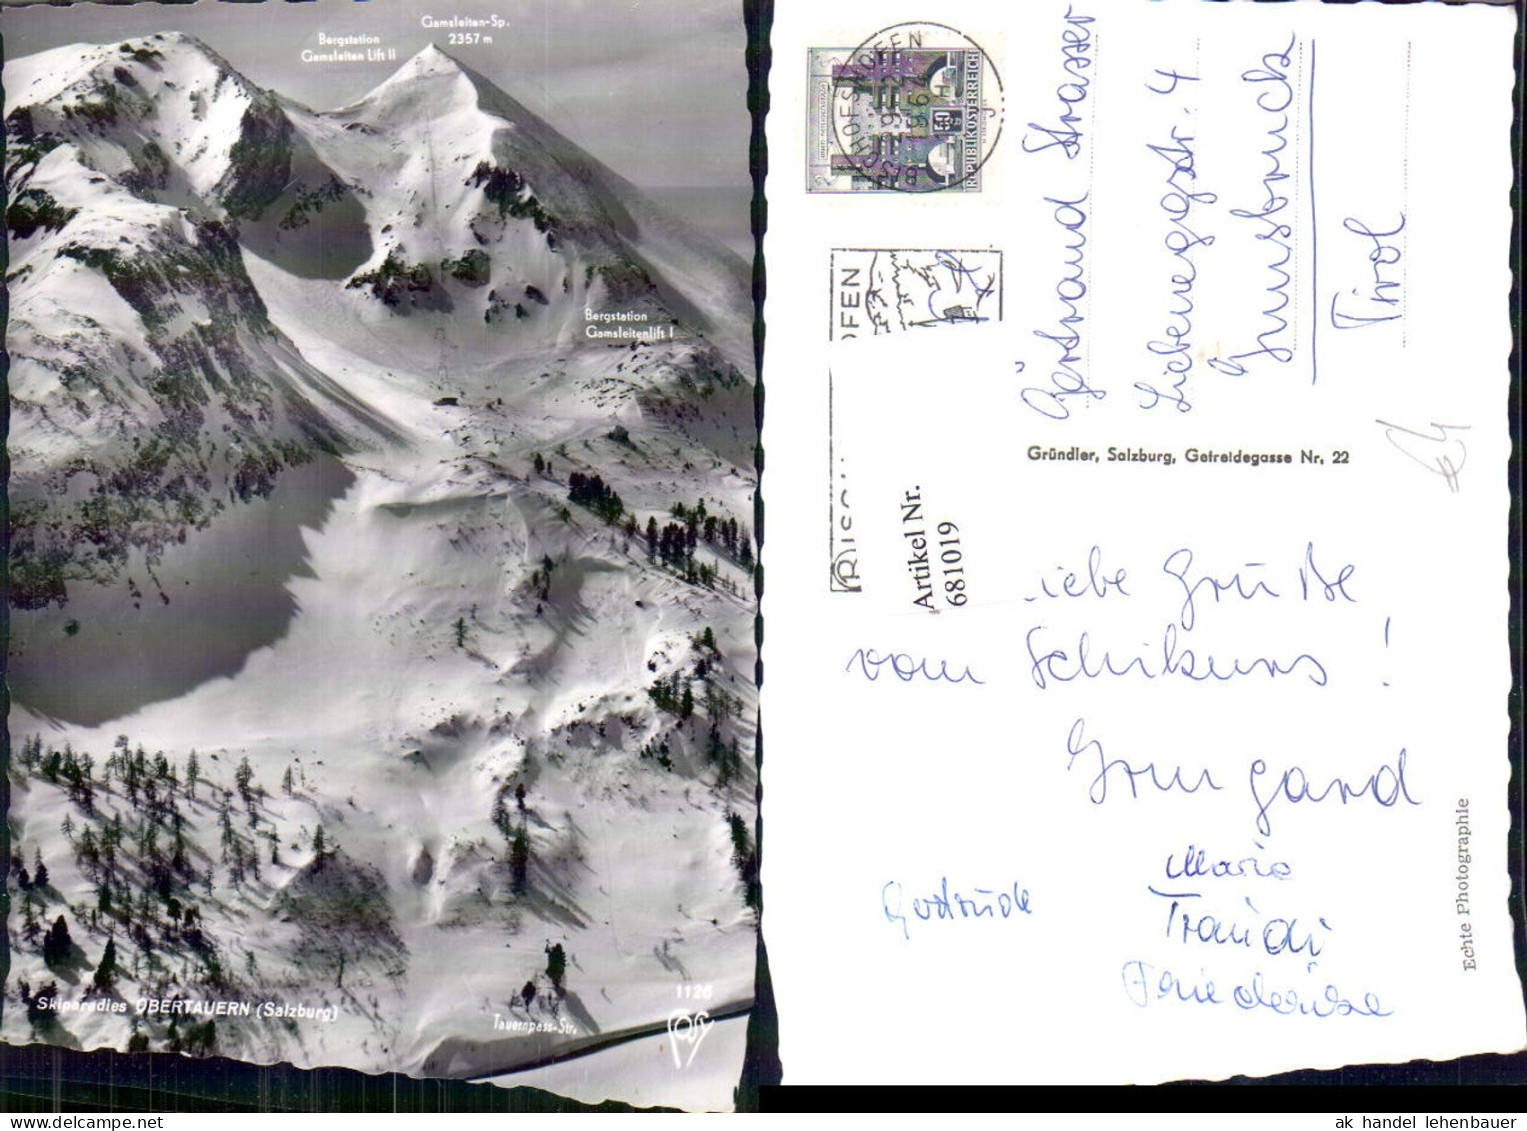 Gamsleiten-Sp.
2357 m
Bergstation
Gamsleiten Lift II
Bergstation
Gamsleitenlift I
Skiparadies OBERTAUERN (Salzburg)
1126
Tauernpass-Str.
REPUBLIK ÖSTERREICH
50
BISCHOFSHOFEN
OFEN
Artikel Nr.
681019
Strasser
Liebeneggstr. 4
Innsbruck
Tirol
Gründler, Salzburg, Getreidegasse Nr. 22
iebe Grüße
vom Schikurs!
Irmgard
Maria
Gertrude
Traudi
Friederike
Echte Photographie
ak handel lehenbauer